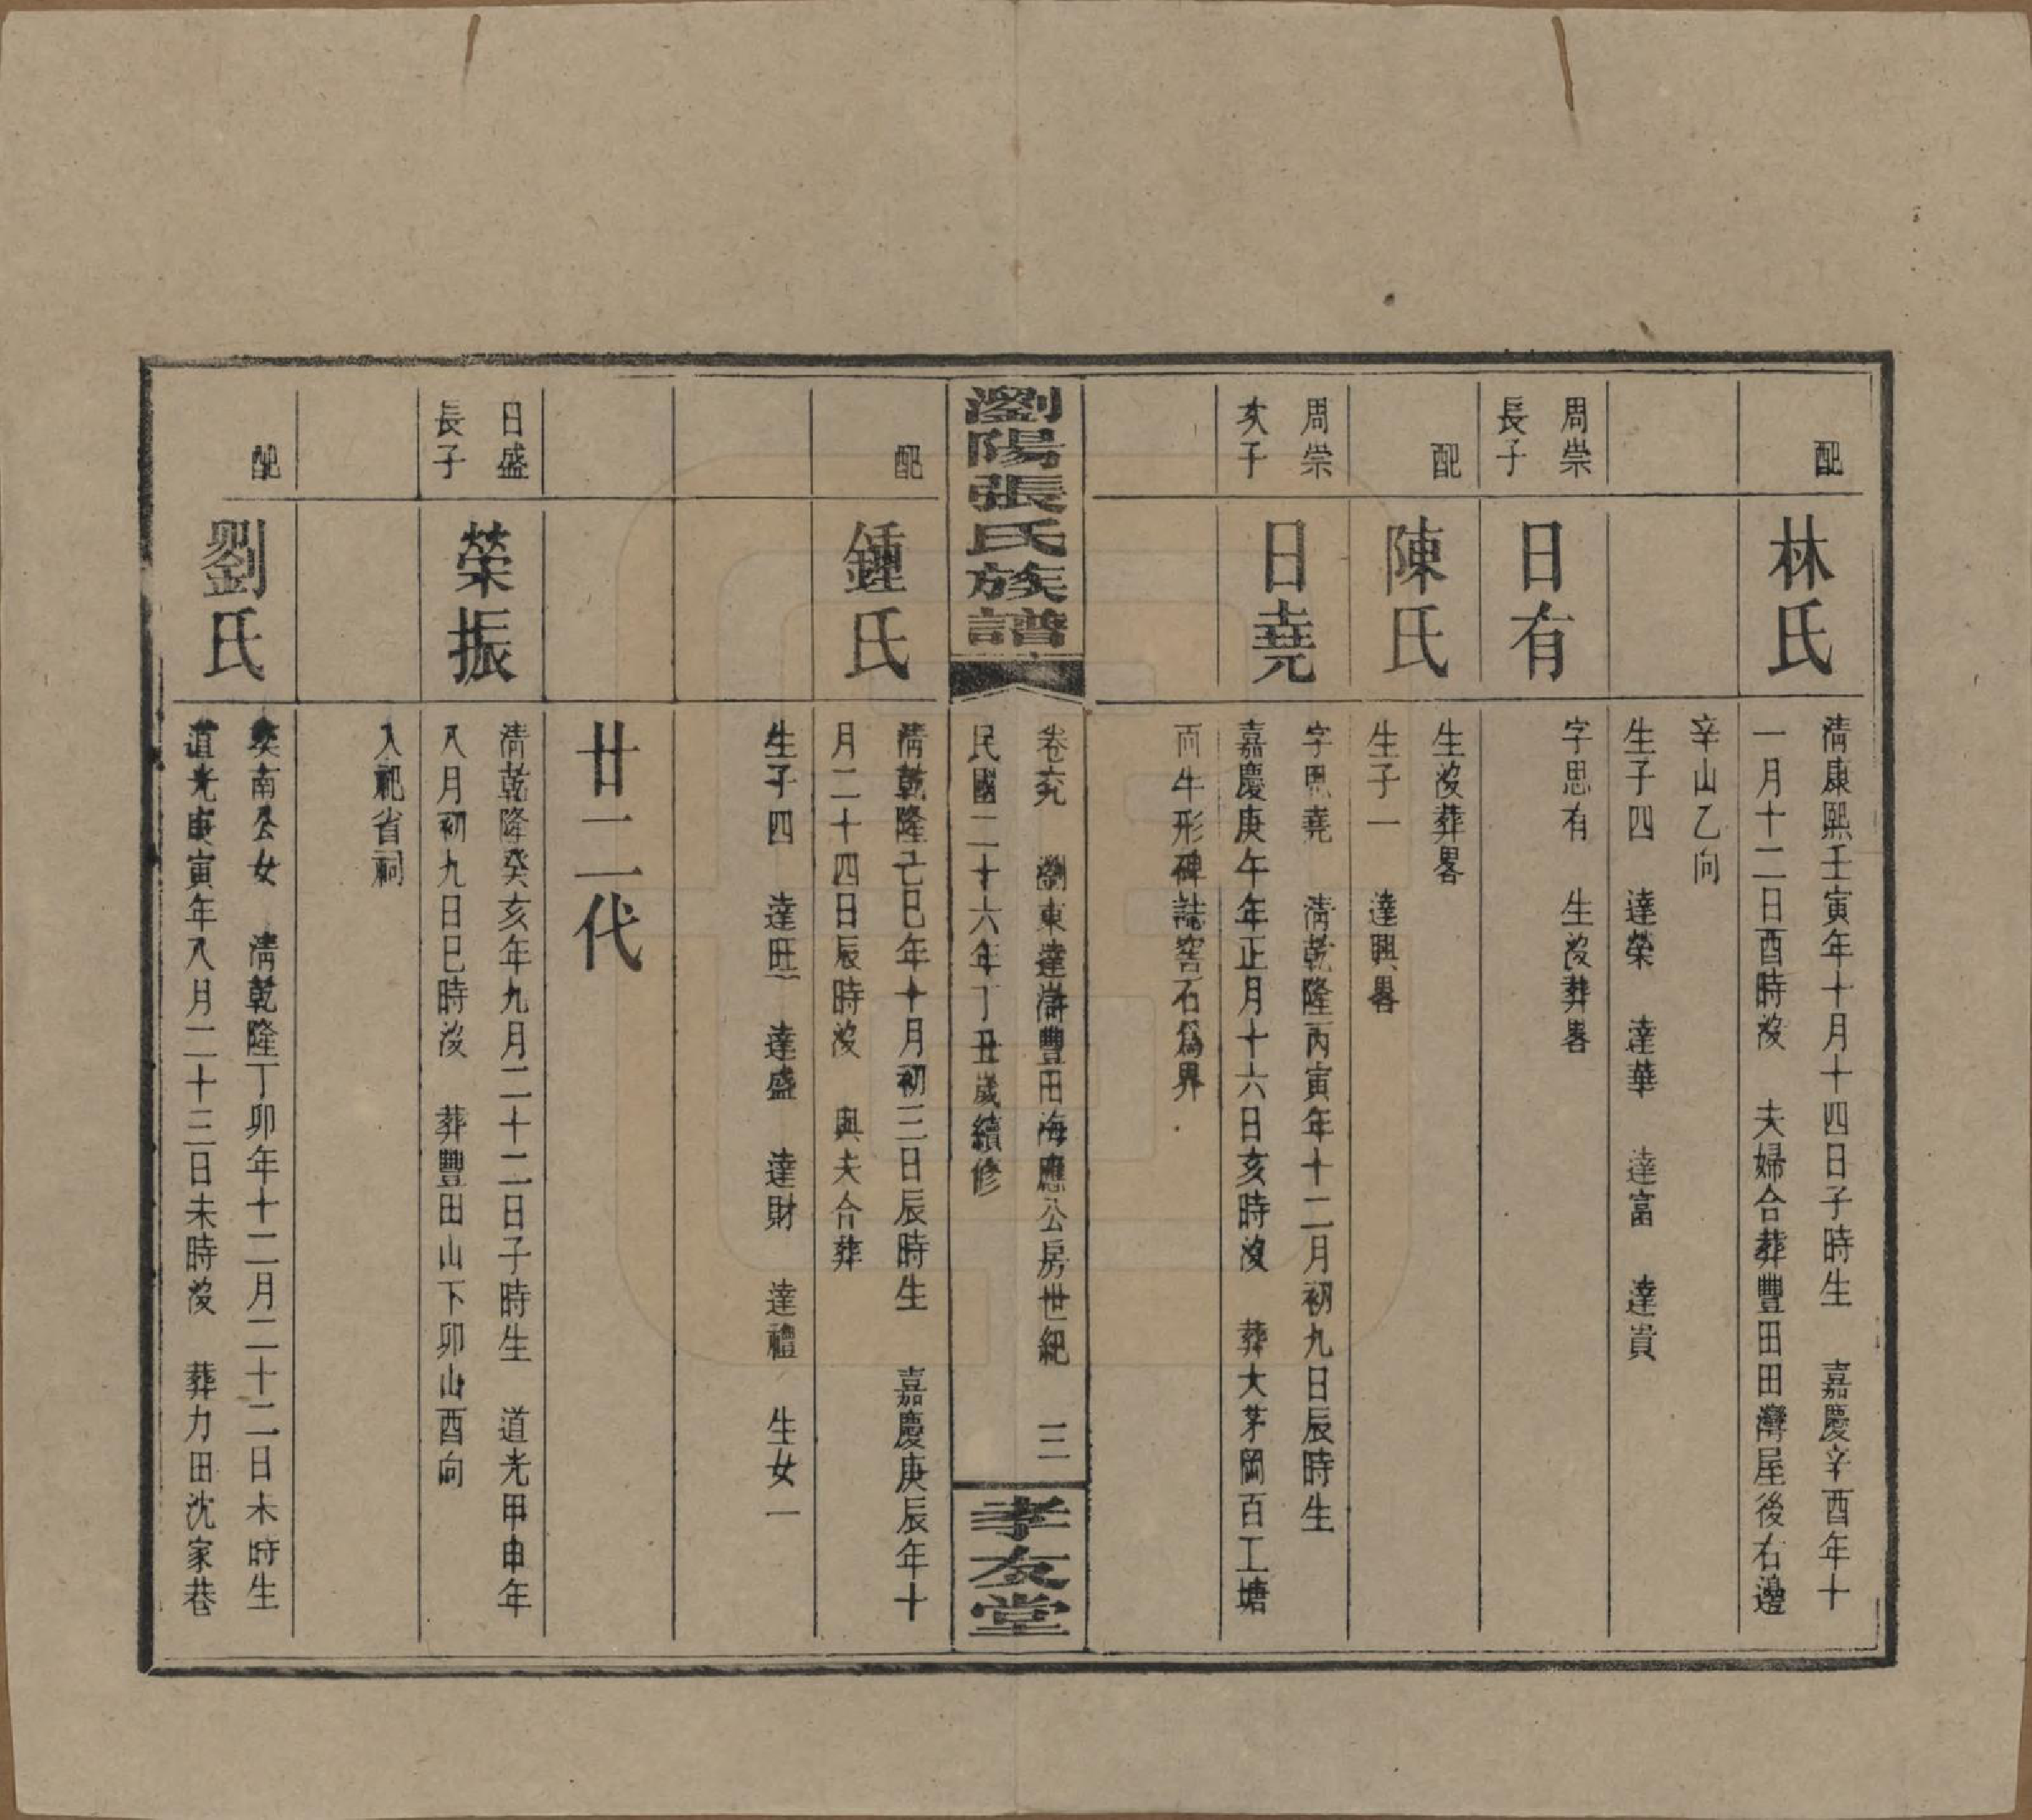 配
林氏
清康熙壬寅年十月十四日子時生　嘉慶辛酉年十
一月十二日酉時沒　夫婦合葬豐田田灣屋後右邊
辛山乙向
生子四　達榮　達華　達富　達貴
周崇
長子
日有
字思有　生沒葬畧
配
陳氏
生沒葬畧
生子一　達興畧
周崇
次子
日堯
字思堯　清乾隆丙寅年十二月初九日辰時生
嘉慶庚午年正月十六日亥時沒　葬大茅岡百工塘
面牛形碑誌窖石爲界
瀏陽張氏族譜
卷六　瀏東達滸豐田海應公房世紀　三
民國二十六年丁丑歲續修
孝友堂
配
鍾氏
清乾隆己巳年十月初三日辰時生　嘉慶庚辰年十
月二十四日辰時沒　與夫合葬
生子四　達旺　達盛　達財　達禮　生女一
廿二代
日盛
長子
榮振
清乾隆癸亥年九月二十二日子時生　道光甲申年
八月初九日巳時沒　葬豐田山下卯山酉向
入祀省祠
配
劉氏
南公女　清乾隆丁卯年十二月二十二日未時生
道光庚寅年八月二十三日未時沒　葬力田沈家巷